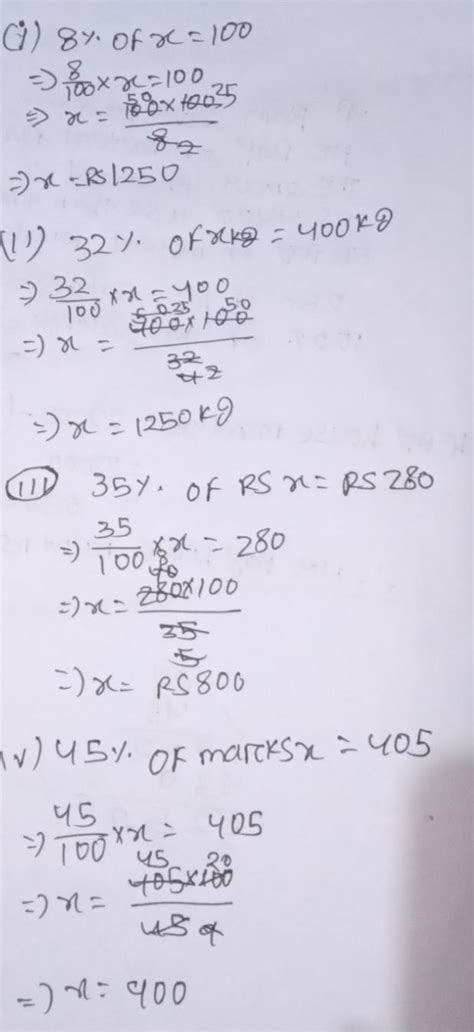 (i) 8% of x = 100
⇒ 8/100 × x = 100
⇒ x = 100 × 100 / 8
⇒ x = RS 1250
(ii) 32% of x kg = 400 kg
⇒ 32/100 × x = 400
⇒ x = 400 × 100 / 32
⇒ x = 1250 kg
(iii) 35% of RS x = RS 280
⇒ 35/100 × x = 280
⇒ x = 280 × 100 / 35
⇒ x = RS 800
iv) 45% of marcks x = 405
⇒ 45/100 × x = 405
⇒ x = 405 × 100 / 45
⇒ x = 900